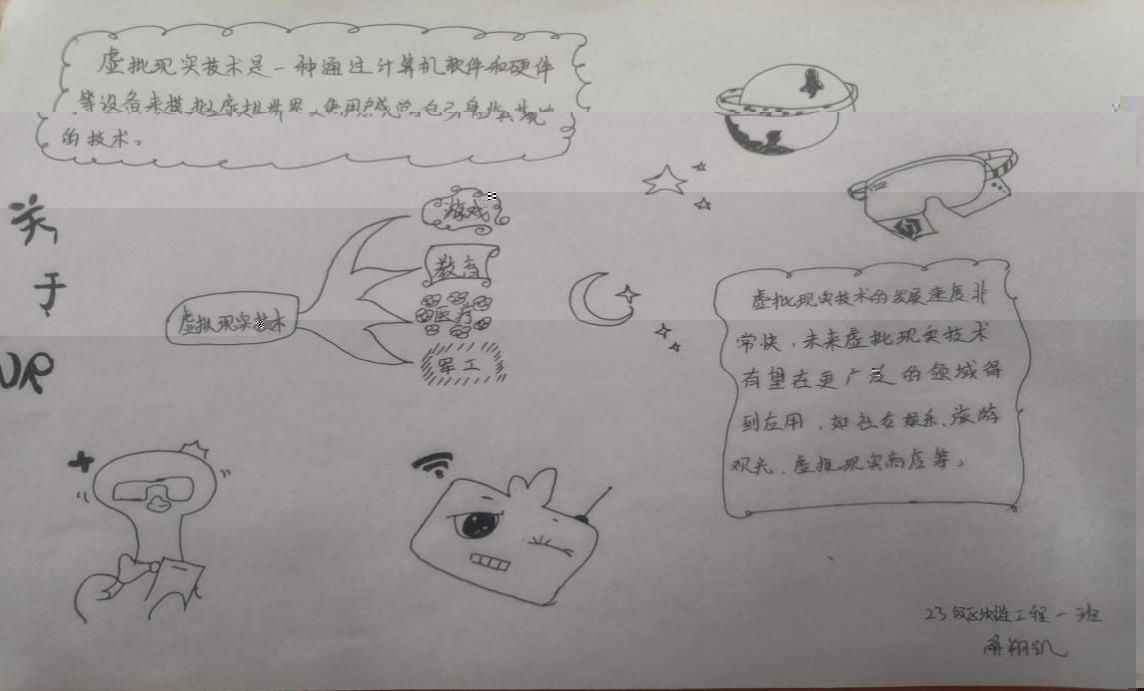 虚拟现实技术是一种通过计算机软件和硬件
等设备来模拟虚拟世界,使用感觉
的技术。
关
于
VR
虚拟现实技术
游戏
教育
医疗
军工
虚拟现实技术的发展速度非
常快,未来虚拟现实技术
有望在更广泛的领域得
到应用,如社交娱乐、旅游
观光、虚拟现实商店等。
23级区块链工程一班